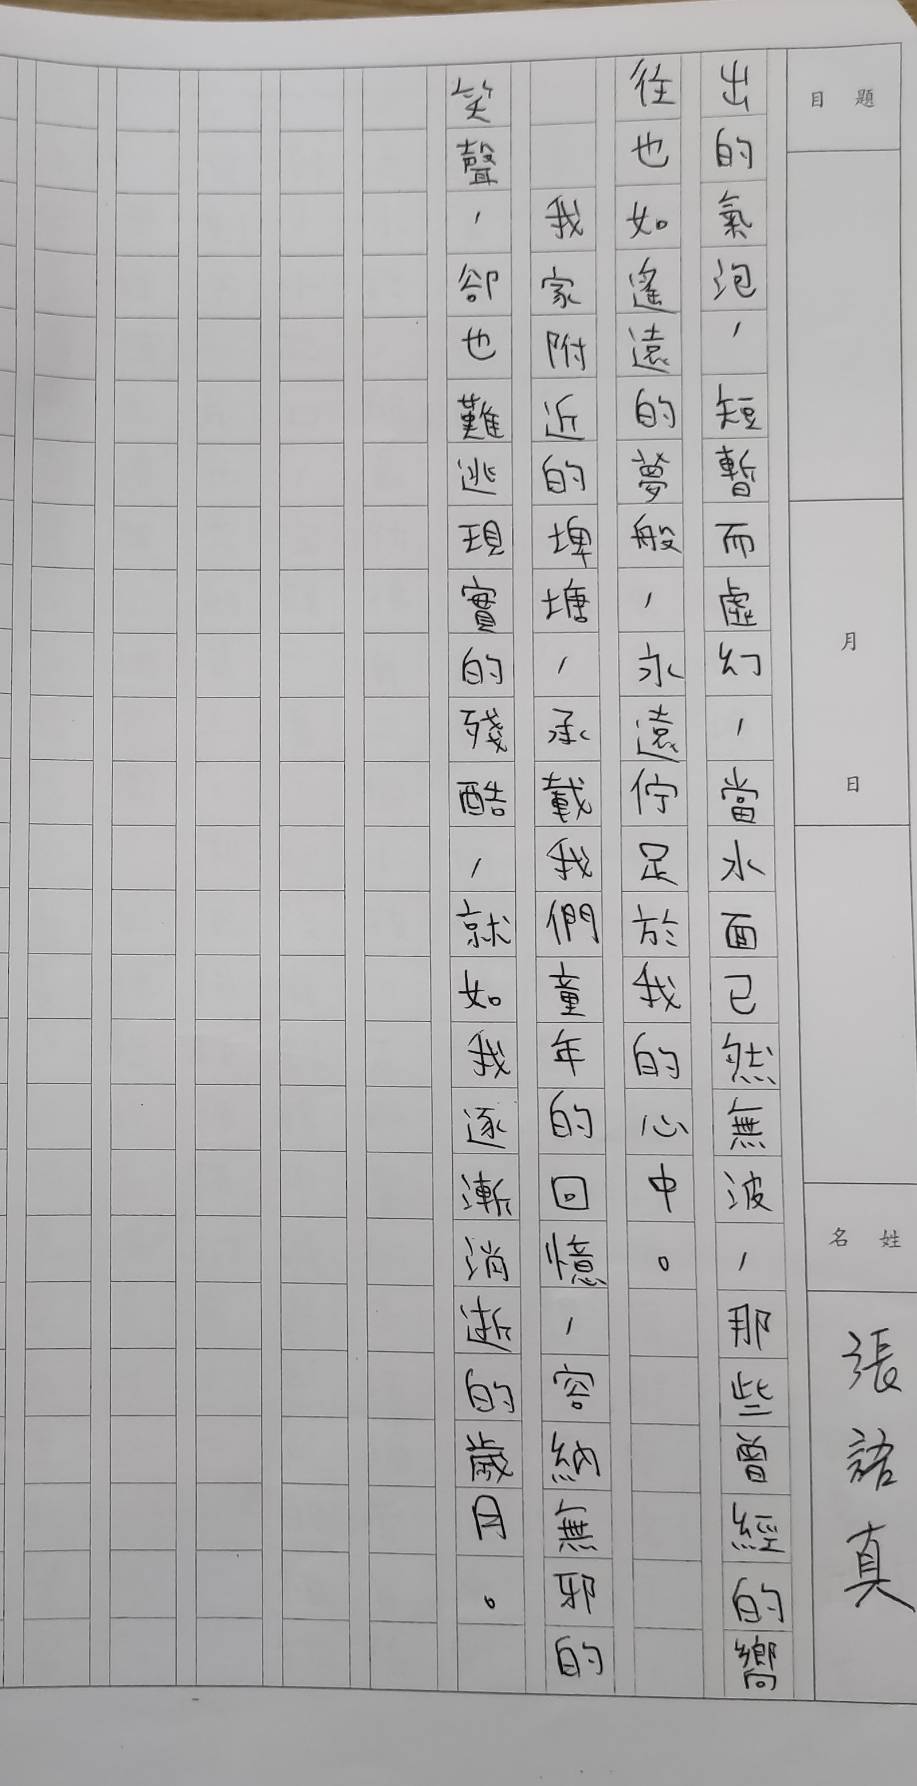 題目
月 日
姓名
張語真
出的氣泡，短暫而虛幻，當水面已然無波，那些曾經的嚮
往也如遙遠的夢般，永遠佇足於我的心中。
我家附近的埤塘，承載我們童年的回憶，容納無邪的
笑聲，卻也難逃現實的殘酷，就如我逐漸消逝的歲月。